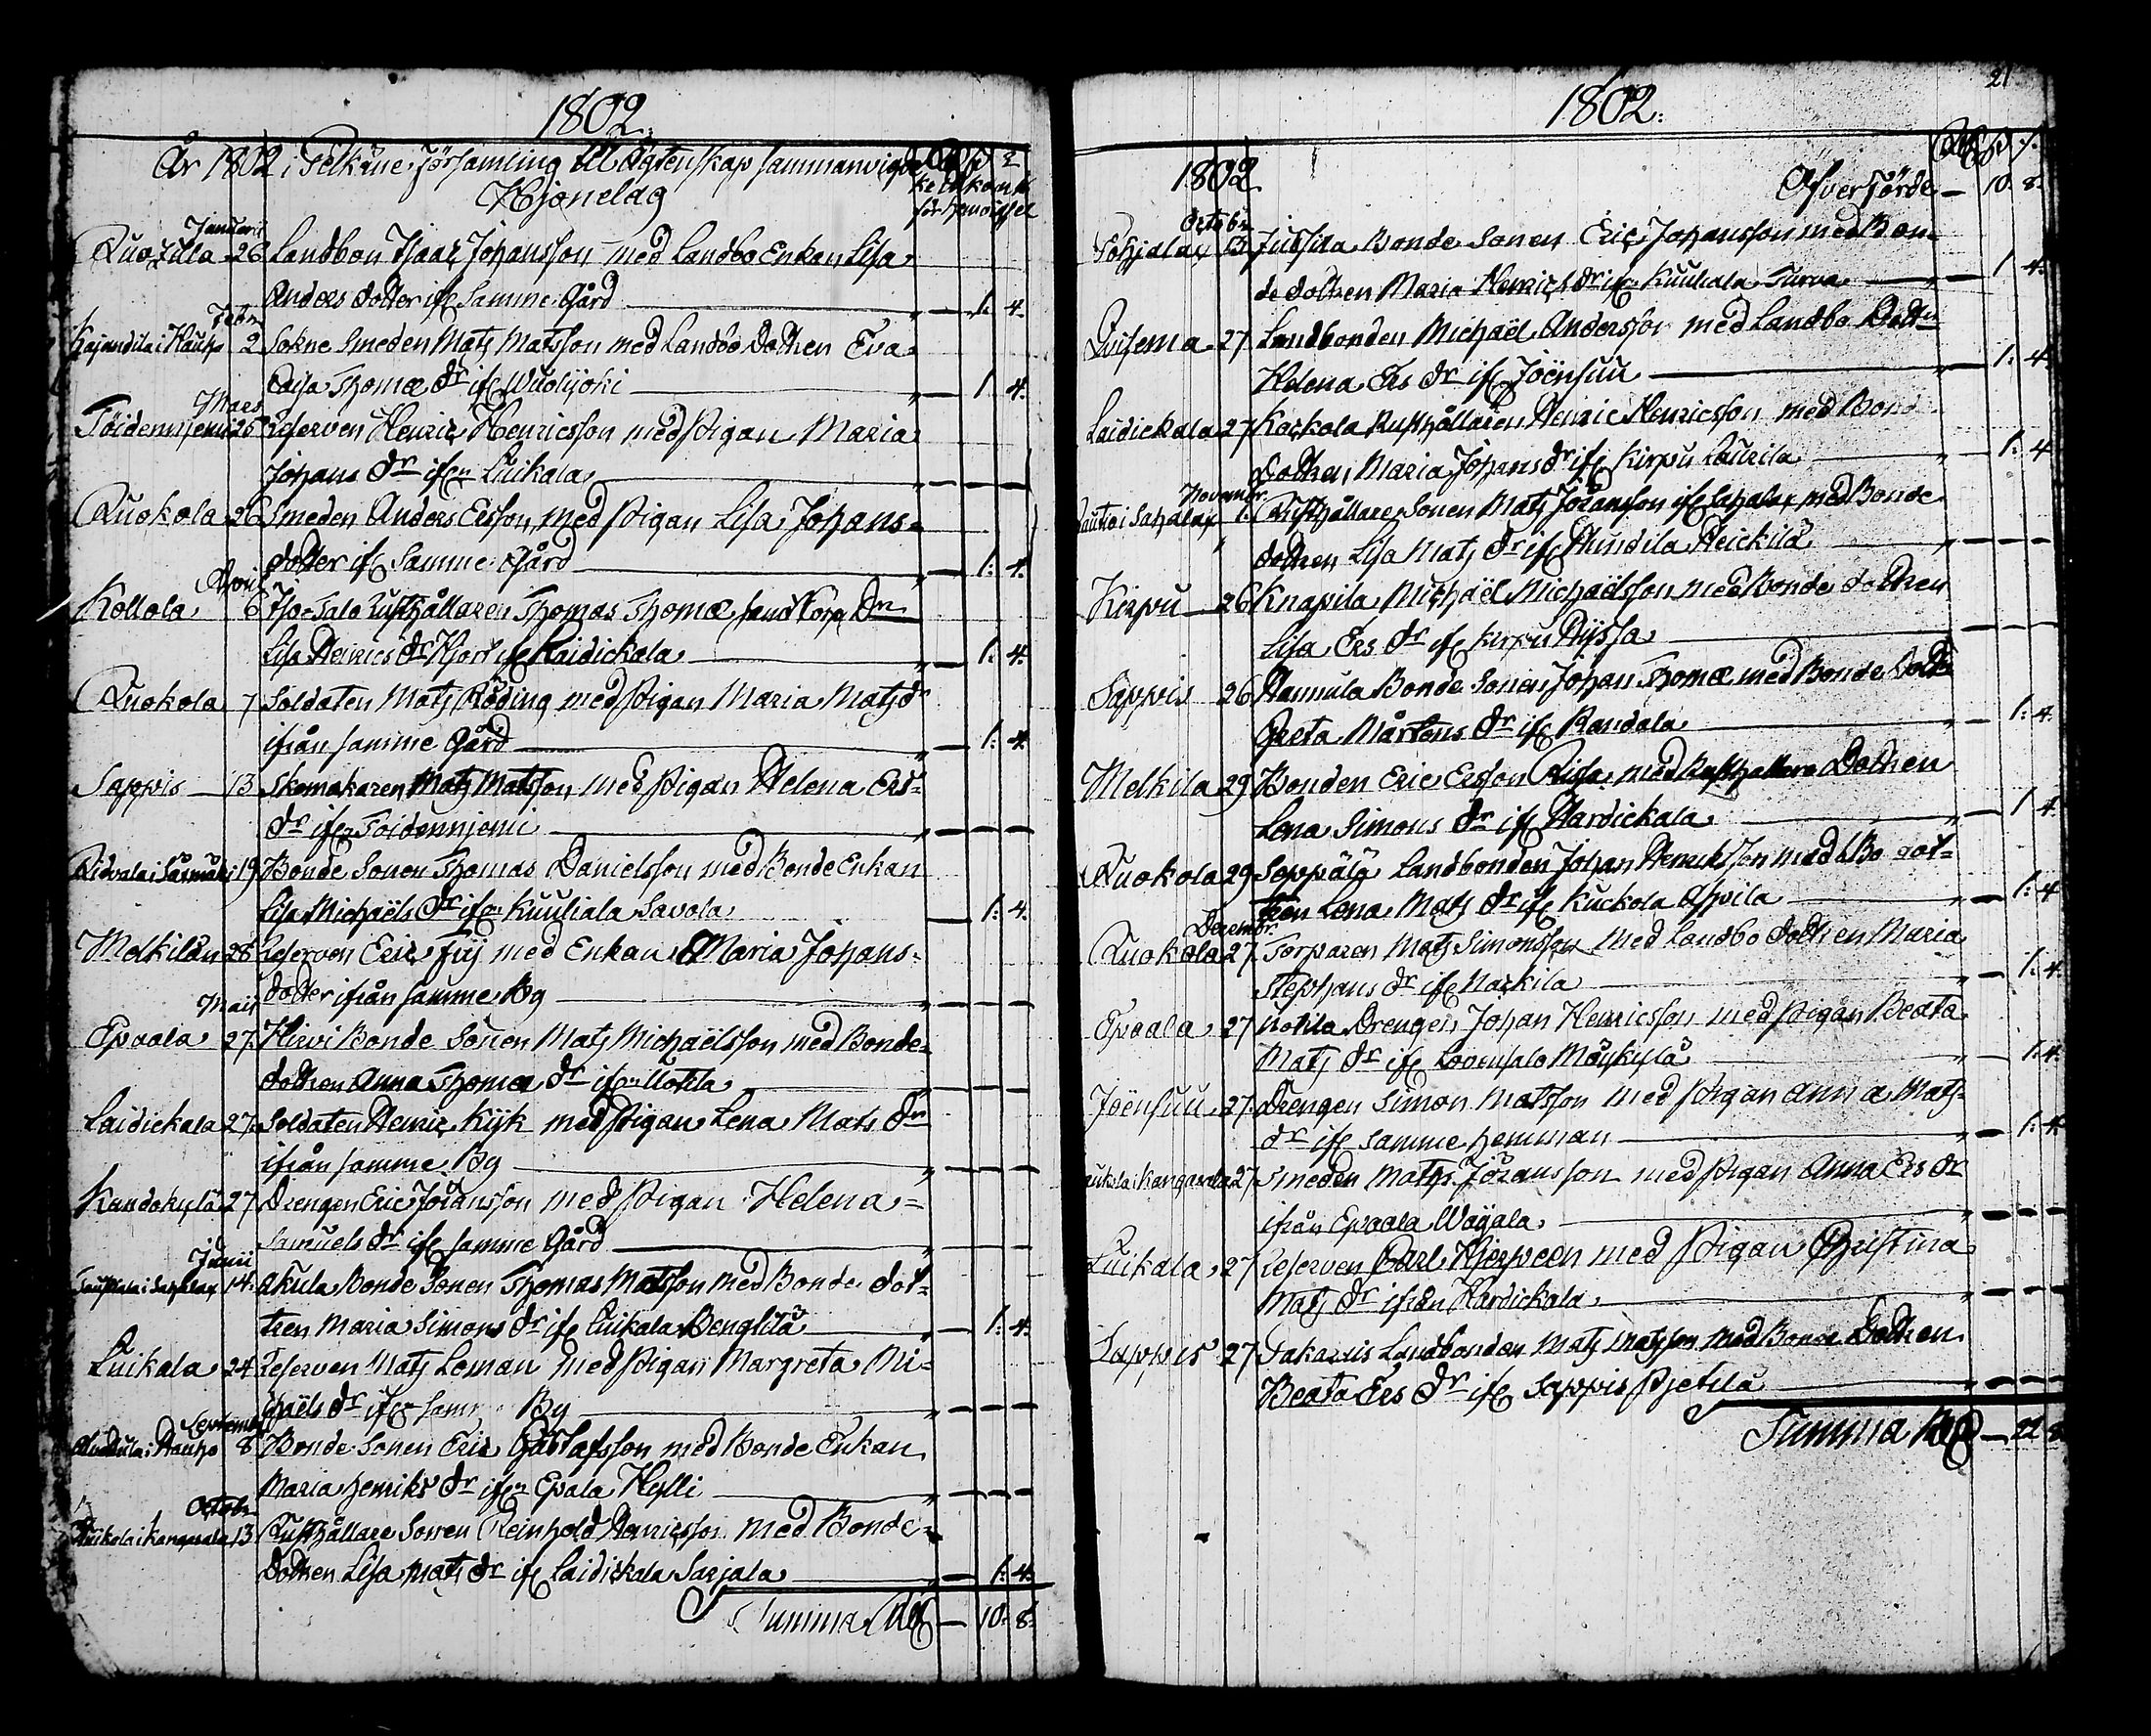 1802.
År 1802 i Pelkäne Församling till Ägtenskap sammanvigde
Hjonelag
Januarii
Ruokula 26 Landbon Isaac Johansson med Landbo Enkan Lisa
Anders dotter ifr. Samme Gård — 1. 4.
Febr.
Kajandila i Hauho 2 Sokne Smeden Mats Matsson med Landbo Dottren Eva
Caisa Thomæ dr ifr. Wuolijoki — 1. 4.
Mars
Töidenniemi 25 Reserven Henric Henricsson med Pigan Maria
Johans dr ifrn Luikala — — —
Ruokola 26 Smeden Anders Ersson med Pigan Lisa Johans=
dotter ifr. Samme Gård — 1. 4.
April
Kollola 6 Iso-Talo Rusthållaren Thomas Thomæ
Lisa Henrics dr Hjort ifr. Laidickala — 1. 4.
Ruokola 7 Soldaten Mats Röding med Pigan Maria Matsdr
ifrån samme Gård — 1. 4.
Sappis 13 Skomakaren Mats Matsson med Pigan Helena Ers=
dr ifrn Toidenniemi — — —
Ridvala i Säxmäki 19 Bonde Sonen Thomas Danielsson med Bonde Enkan
Lisa Michaëls dr ifrn Kuuliala Savola — 1. 4.
Melkilän 28 Reserven Eric Fri med Enkan Maria Johans=
dotter ifrån samme By — — —
Maii
Epaala 27 Hirvi Bonde Sonen Mats Michaëlsson med Bonde=
dottren Anna Thomæ dr ifrn Uotila — — —
Laidickala 27. Soldaten Henric Kijk med Pigan Lena Mats dr
ifrån samme By — — —
Kandokylä 27 Drengen Eric Johansson med Pigan Helena=
Samuels dr ifr. samme Gård — — —
Junii
i Sahalax 14. Akula Bonde Sonen Thomas Matsson med Bonde dot=
tren Maria Simons dr ifr. Luikala Benglilä — 1. 4.
Luikala 24 Reserven Mats Loman med Pigan Margreta Mi=
chaëls dr ifrn sam By — — —
September
i Hauho 8 Bonde Sonen Eric Gustafsson med Bonde Enkan
Maria Henriks dr ifrn Epala Hylli — — —
Octobr.
i Kangasala 13 Rusthållare Sonen Reinhold Henricsson med Bonde=
dottren Lisa Mats dr ifr. Laidickala Sarjala — 1. 4.
Summa — 10. 8.
21
1802.
1802. Öfverförde — 10. 8.
Octobr.
Pohjalax 13. Jussila Bonde Sonen Eric Johansson med Bon=
de dottren Maria Henrics dr ifr. Kuuliala Turva — 1. 4.
Qvisema 27 Landbonden Michaël Andersson med Landbo Dottr.
Helena Ers dr ifr. Joënsuu — 1. 4.
Laidickala 27 Kackola Rusthållaren Henric Henricsson med Bond
Dottren Maria Johans dr ifr. Kirpu Laurila — 1. 4
Novembr.
Rautio i Sahalax 1. Rusthållare Sonen Mats Johansson ifr Sahalax med Bonde
dottren Lisa Mats dr ifr. Heickilä — — —
Kirpu 26 Knapila Michaël Michaëlsson med Bonde dottren
Lisa Ers dr ifr. Kirpu Ryssä — — —
Sappis 26 Hannula Bonde Sonen Johan Thomæ med Bonde Dottr
Greta Mårtens dr ifr. Randala — 1. 4.
Melkila 29 Bonden Eric Ersson Rissa med Rusthållare Dottren
Lena Simons dr ifr. Hardickala — 1. 4.
Ruokola 29 Seppälä Landbonden Johan Henriksson med Bo dot=
tren Lena Mats dr ifr. Kuckola Appila — 1. 4
Decembr.
Ruokola 27. Torparen Mats Simonsson med Landbo dottren Maria
Stephans dr ifr. Nackila — 1. 4.
Epaala 27 Uotila Drengen Johan Henricsson med Pigan Beata
Mats dr ifr. Lovensalo Möykylä — 1. 4.
Joënsuu 27. Drengen Simon Matsson med Pigan Anna Mats=
dr ifr. samme hemman — 1. 4.
i Kangasala 27 Smeden Matts Johansson med Pigan Anna Ers dr
ifrån Epaala Wäyälä — — —
Luikala 27 Reserven Carl Hierpeen med Pigan Christina
Mats dr ifrån Hardickala — — —
Sappis 27 Pakaris Landbonden Mats Matsson med Bonde Dottren
Beata Ers dr ifr. Sappis Pjetilä — — —
Summa — 22 8